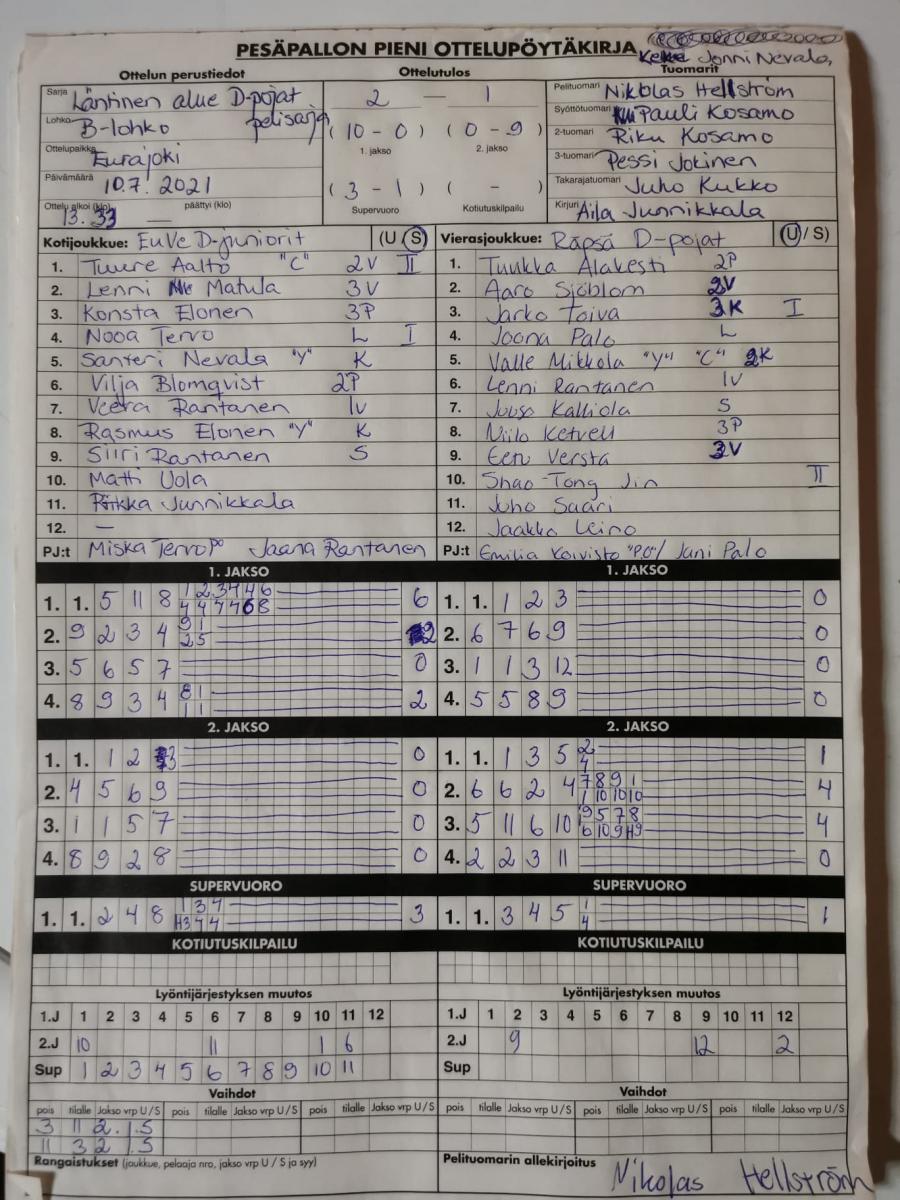 PESÄPALLON PIENI OTTELUPÖYTÄKIRJA
Jonni Nevala,
Ottelun perustiedot Ottelutulos Tuomarit
Sarja Läntinen alue D-pojat pelisarja
Lohko B-lohko
Ottelupaikka Eurajoki
Päivämäärä 10.7. 2021
Ottelu alkoi (klo) 13.33 — päättyi (klo)
2 — 1
(10 - 0) (0 - 9)
1. jakso 2. jakso
(3 - 1) ( - )
Supervuoro Kotiutuskilpailu
Pelituomari Nikolas Hellström
Syöttötuomari Pauli Kosamo
2-tuomari Riku Kosamo
3-tuomari Pessi Jokinen
Takarajatuomari Juho Kukko
Kirjuri Aila Junnikkala
Kotijoukkue: EuVe D-juniorit (U S)
1. Tuure Aalto "C" 2V II
2. Lenni Matula 3V
3. Konsta Elonen 3P
4. Nooa Tervo L I
5. Santeri Nevala "Y" K
6. Vilja Blomqvist 2P
7. Veera Rantanen 1v
8. Rasmus Elonen "Y" K
9. Siiri Rantanen S
10. Matti Uola
11. Junnikkala
12. —
PJ:t Miska Tervo PO Jaana Rantanen
Vierasjoukkue: Räpsä D-pojat (U / S)
1. Tuukka Alakesti 2P
2. Aaro Sjöblom 2V
3. Jarko Toiva 3K I
4. Joona Palo L
5. Valle Mikkola "Y" "C" 2K
6. Lenni Rantanen 1v
7. Juuso Kalliola S
8. Niilo Ketvell 3P
9. Eetu Versta 3V
10. Shao-Tong Jin II
11. Juho Saari
12. Jaakko Leino
PJ:t Emilia Koivisto "P.O"/ Jani Palo
1. JAKSO
1. 1. 5 11 8 6
2. 9 2 3 4 9 1 2 5 2
3. 5 6 5 7 0
4. 8 9 3 4 8 1 1 1 2
1. JAKSO
1. 1. 1 2 3 0
2. 6 7 6 9 0
3. 1 1 3 12 0
4. 5 5 8 9 0
2. JAKSO
1. 1. 1 2 3 0
2. 4 5 6 9 0
3. 1 1 5 7 0
4. 8 9 2 8 0
2. JAKSO
1. 1. 1 3 5 2 4 1
2. 6 6 2 4 7 8 9 1 1 10 10 10 4
3. 5 11 6 10 9 5 7 8 6 10 9 H9 4
4. 2 2 3 11 0
SUPERVUORO
1. 1. 2 4 8 1 3 4 H3 4 4 3
SUPERVUORO
1. 1. 3 4 5 1 4 1
KOTIUTUSKILPAILU
KOTIUTUSKILPAILU
Lyöntijärjestyksen muutos
1.J 1 2 3 4 5 6 7 8 9 10 11 12
2.J 10 11 1 6
Sup 1 2 3 4 5 6 7 8 9 10 11
Lyöntijärjestyksen muutos
1.J 1 2 3 4 5 6 7 8 9 10 11 12
2.J 9 12 2
Sup
Vaihdot
pois tilalle Jakso vrp U / S pois tilalle Jakso vrp U / S pois tilalle Jakso vrp U / S
3 11 2. 1.S
11 3 2 1.S
Vaihdot
pois tilalle Jakso vrp U / S pois tilalle Jakso vrp U / S pois tilalle Jakso vrp U / S
Rangaistukset (joukkue, pelaaja nro, jakso vrp U / S ja syy)
Pelituomarin allekirjoitus
Nikolas Hellström